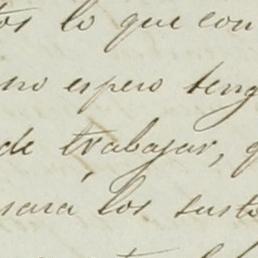 tos lo que con
no espero teng
de trabajar, q
sara los susto